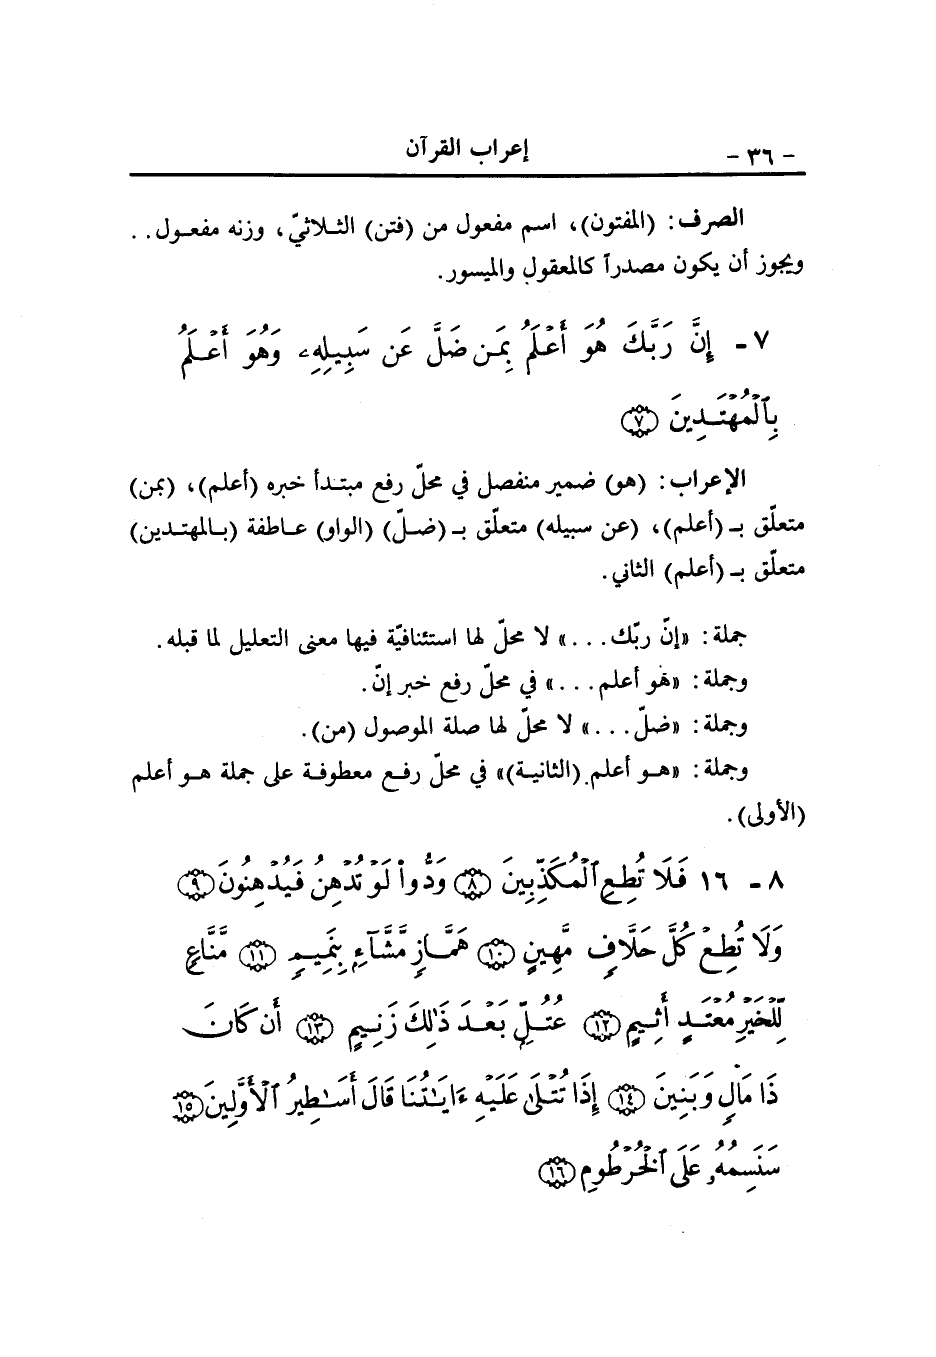 - ٣٦ - إعراب القرآن
الصرف: (المفتون)، اسم مفعول من (فتن) الثلاثيّ، وزنه مفعول . .
ويجوز أن يكون مصدراً كالمعقول والميسور.
٧ - إِنَّ رَبَّكَ هُوَ أَعْلَمُ بِمَن ضَلَّ عَن سَبِيلِهِۦ وَهُوَ أَعْلَمُ
بِٱلْمُهْتَدِينَ ﴿٧﴾
الإعراب: (هو) ضمير منفصل في محلّ رفع مبتدأ خبره (أعلم)، (بمن)
متعلّق بـ (أعلم)، (عن سبيله) متعلّق بـ (ضلّ) (الواو) عاطفة (بالمهتدين)
متعلّق بـ (أعلم) الثاني.
جملة: «إنّ ربّك . . .» لا محلّ لها استئنافيّة فيها معنى التعليل لما قبله.
وجملة: «هو أعلم . . .» في محلّ رفع خبر إنّ.
وجملة: «ضلّ . . .» لا محلّ لها صلة الموصول (من).
وجملة: «هو أعلم (الثانية)» في محلّ رفع معطوفة على جملة هو أعلم
(الأولى).
٨ - ١٦ فَلَا تُطِعِ ٱلْمُكَذِّبِينَ ﴿٨﴾ وَدُّوا۟ لَوْ تُدْهِنُ فَيُدْهِنُونَ ﴿٩﴾
وَلَا تُطِعْ كُلَّ حَلَّافٍ مَّهِينٍ ﴿١٠﴾ هَمَّازٍ مَّشَّآءٍ بِنَمِيمٍ ﴿١١﴾ مَّنَّاعٍ
لِّلْخَيْرِ مُعْتَدٍ أَثِيمٍ ﴿١٢﴾ عُتُلٍّ بَعْدَ ذَٰلِكَ زَنِيمٍ ﴿١٣﴾ أَن كَانَ
ذَا مَالٍ وَبَنِينَ ﴿١٤﴾ إِذَا تُتْلَىٰ عَلَيْهِ ءَايَٰتُنَا قَالَ أَسَٰطِيرُ ٱلْأَوَّلِينَ ﴿١٥﴾
سَنَسِمُهُۥ عَلَى ٱلْخُرْطُومِ ﴿١٦﴾